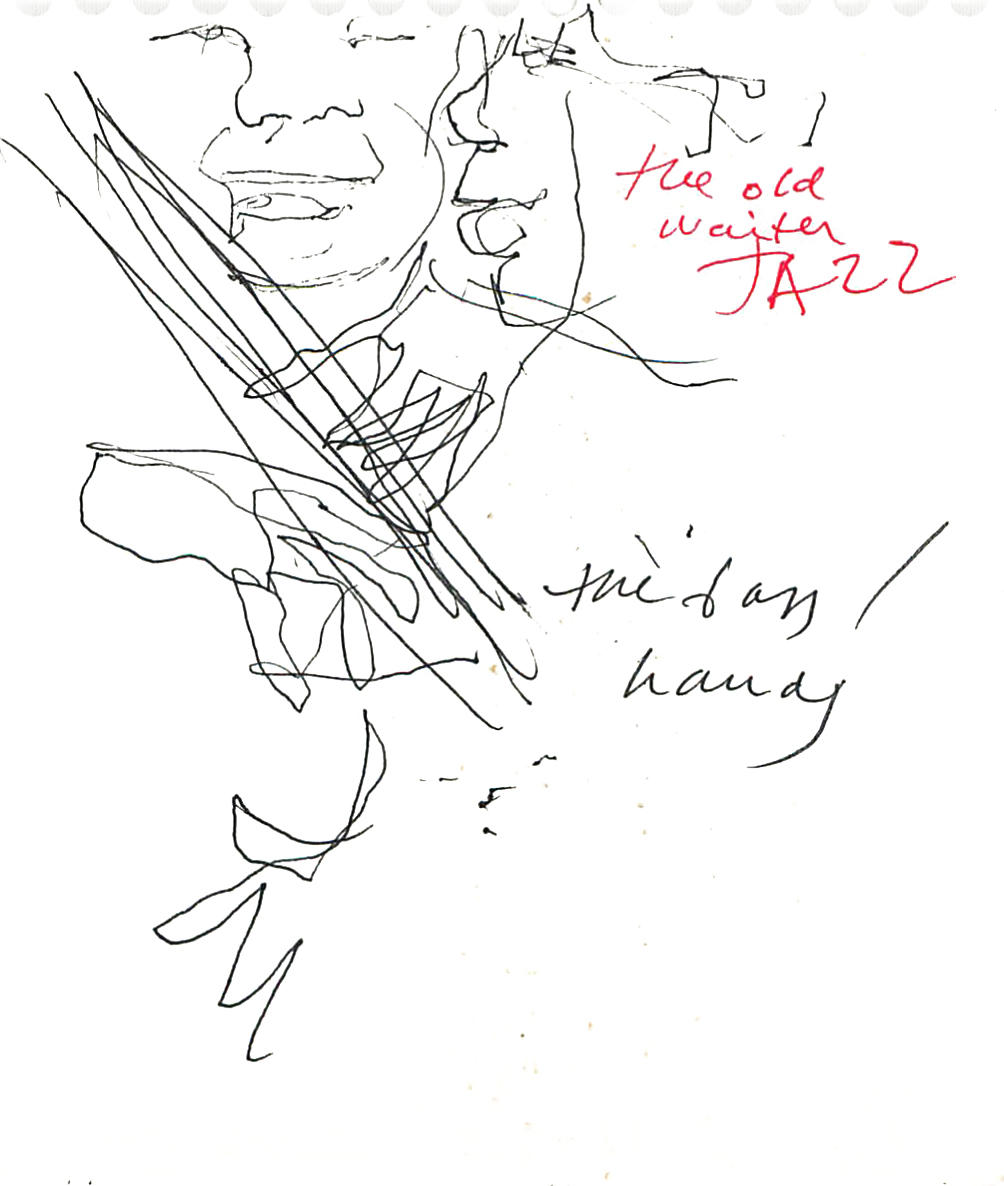 the old
waiter
JAZZ
the bass /
hands